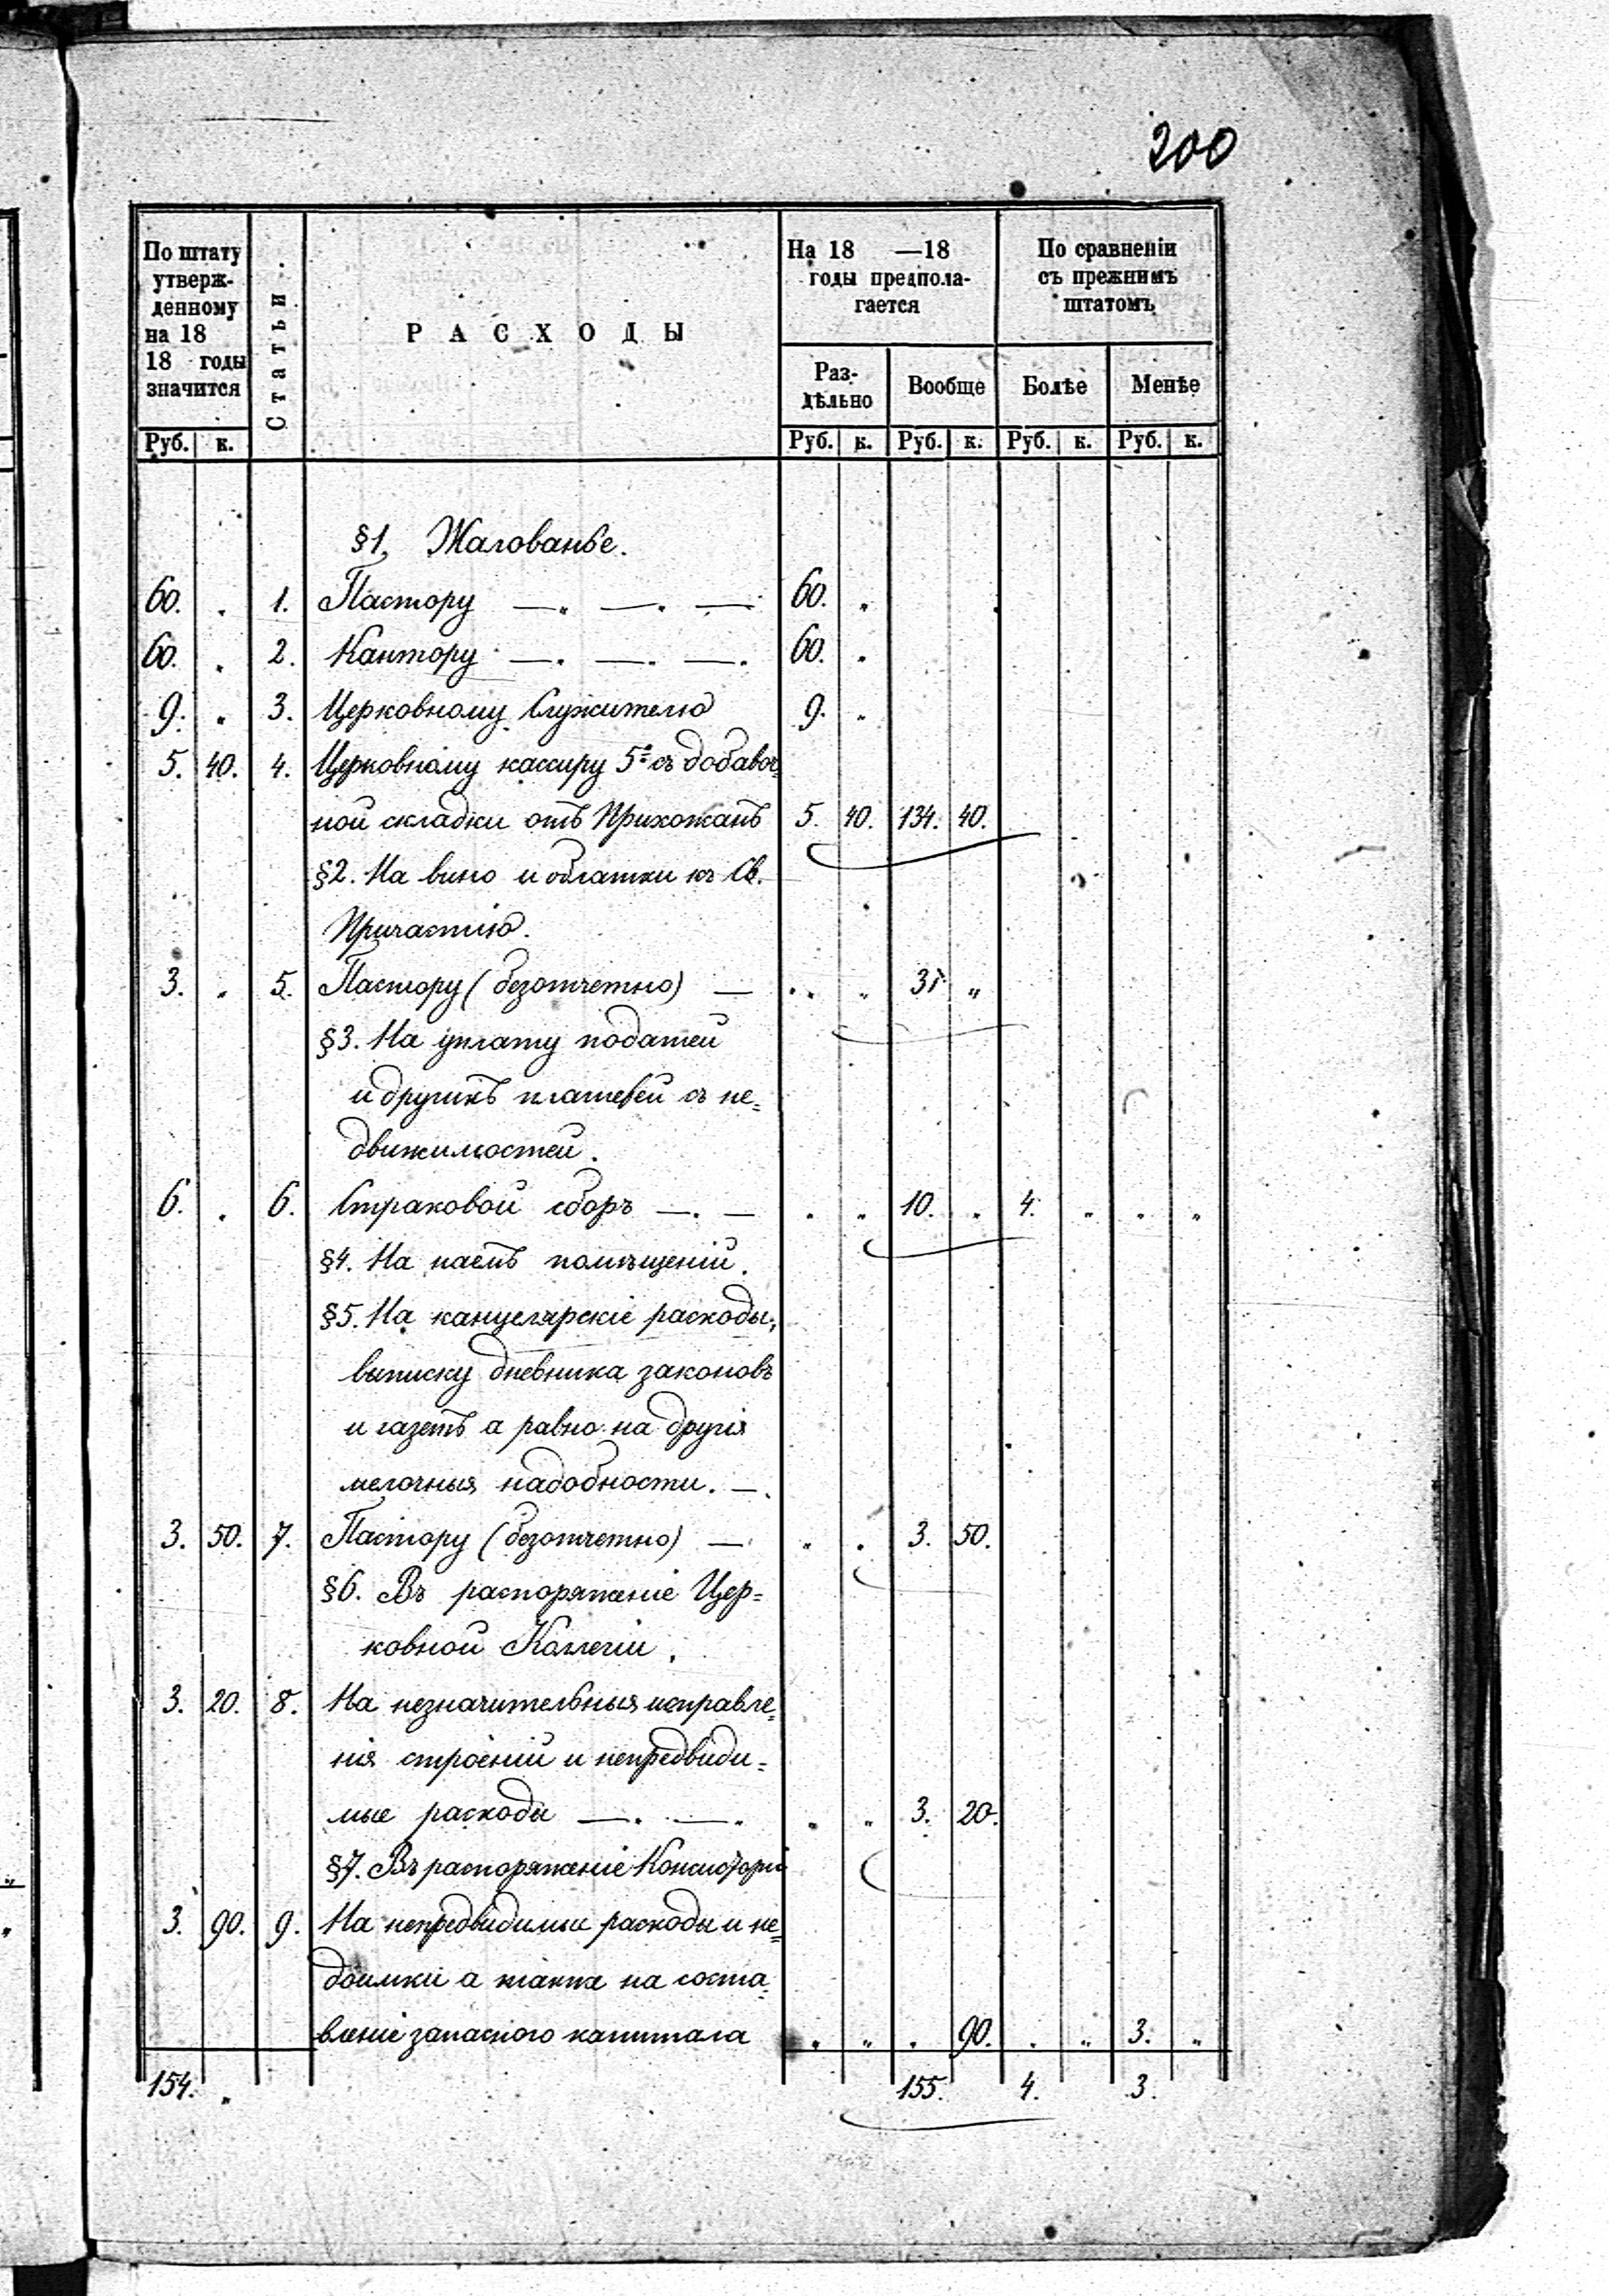 200
По штату утверж-денному на 18 18 годы значится | Статьи. | РАСХОДЫ | На 18 —18 годы предпола-гается | По сравненіи съ прежнимъ штатомъ
Раз-дѣльно | Вообще | Болѣе | Менѣе
Руб. | к. | Руб. | к. | Руб. | к. | Руб. | к. | Руб. | к.
§1. Жалованье.
60. „ 1. Пастору —„ —. — 60. „
60. „ 2. Кантору —. —. —. 60. „
9. „ 3. Церковному Служителю 9. „
5. 40. 4. Церковному кассиру 5% съ добавоч=
ной складки отъ Прихожанъ 5. 40. 134. 40.
§2. На вино и облатки къ Св.
Причастію.
3. „ 5. Пастору (безотчетно) — „ „ 3. „
§3. На уплату податей
и другихъ платежей съ не=
движимостей.
6. „ 6. Страховой сборъ —. — „ „ 10. „ 4. „ „ „
§4. На наемъ помѣщеній.
§5. На канцелярскіе расходы,
выписку дневника законовъ
и газетъ а равно на другія
мелочныя надобности. —.
3. 50. 7. Пастору (безотчетно) — „ „ 3. 50.
§6. Въ распоряженіе Цер=
ковной Коллегіи.
3. 20. 8. На незначительныя исправле=
нія строеній и непредвиди=
мые расходы —. —. „ „ 3. 20.
§7. Въ распоряженіе Консисторіи
3. 90. 9. На непредвидимые расходы и не=
доимки а также на соста=
вленіе запаснаго капитала „ „ „ 90. „ „ 3. „
154. „ 155. 4. 3.